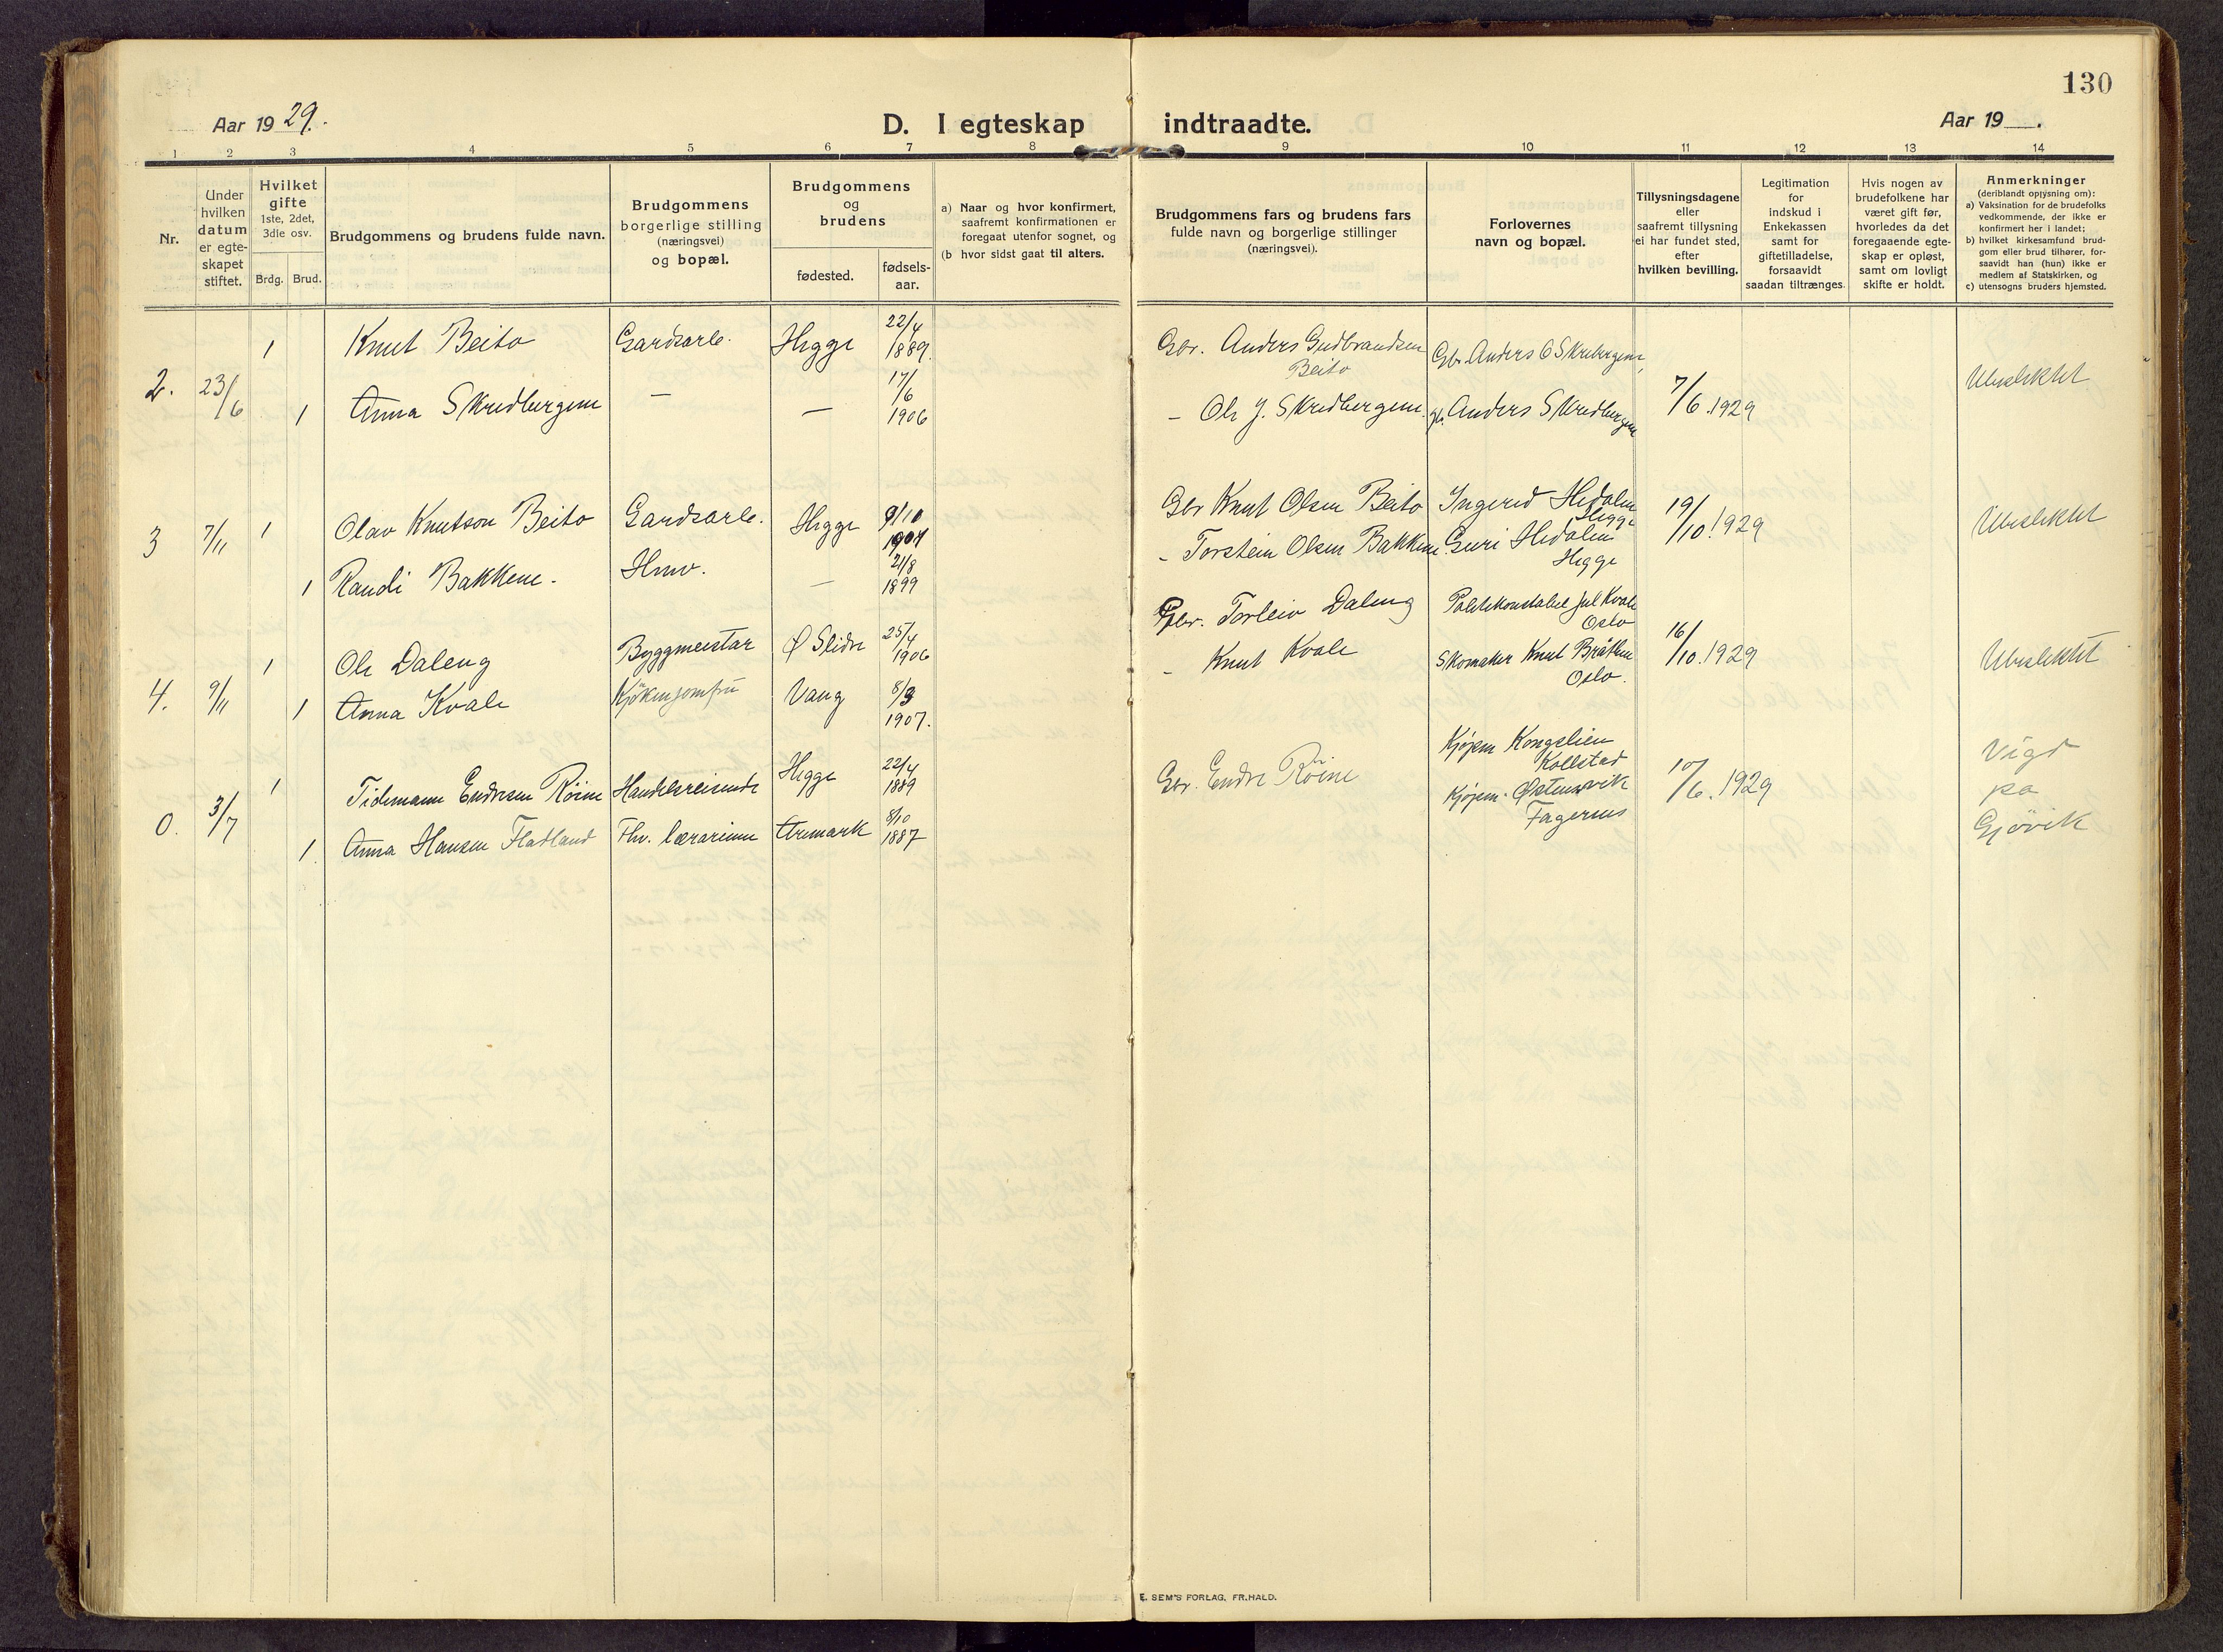 130
Aar 19 29.
D. I egteskap indtraadte.
Aar 19 .
1 2 3 4 5 6 7 8 9 10 11 12 13 14
Nr.
Under
hvilken
datum
er egte-
skapet
stiftet.
Hvilket
gifte
1ste, 2det,
3die osv.
Brdg. Brud.
Brudgommens og brudens fulde navn.
Brudgommens
borgerlige stilling
(næringsvei)
og bopæl.
Brudgommens
og
brudens
fødested.
fødsels-
aar.
a) Naar og hvor konfirmert,
saafremt konfirmationen er
foregaat utenfor sognet, og
(b hvor sidst gaat til alters.
Brudgommens fars og brudens fars
fulde navn og borgerlige stillinger
(næringsvei).
Forlovernes
navn og bopæl.
Tillysningsdagene
eller
saafremt tillysning
ei har fundet sted,
efter
hvilken bevilling.
Legitimation
for
indskud i
Enkekassen
samt for
giftetilladelse,
forsaavidt
saadan tiltrænges.
Hvis nogen av
brudefolkene har
været gift før,
hvorledes da det
foregaaende egte-
skap er opløst,
samt om lovligt
skifte er holdt.
Anmerkninger
(deriblandt oplysning om):
a) Vaksination for de brudefolks
vedkommende, der ikke er
konfirmert her i landet;
b) hvilket kirkesamfund brud-
gom eller brud tilhører, for-
saavidt han (hun) ikke er
medlem af Statskirken, og
c) utensogns bruders hjemsted.
2. 23/6
1 Knut Beito Gardsarb. Hegge 22/4 1889.
Gbr. Anders Gudbrandsen
Beito
Gbr. Anders O Skrebergene,
1 Anna Skredbergene — — 17/6 1906
– Ole J. Skredbergene. gb. Anders Skredbergene
7/6 1929
Ubeslektet
3 7/11 1 Olav Knutson Beito Gardsarb. Hegge 9/10 1904
Gbr Knut Olsen Beito Ingerid Hedalen
Hegge
19/10 1929
Ubeslektet
1 Randi Bakkene. Hmv. — 21/8 1899
– Torstein Olsen Bakkene Guri Hedalen
Hegge
4. 9/11 1 Ole Daleng Byggmeistar Ø Slidre 25/4 1906
Gbr. Torleiv Daleng Politikonstabel Jul Kvale
Oslo
16/10 1929
Ubeslektet
1 Anna Kvale Kjøkenjomfru Vang 8/3 1907.
– Knut Kvale Skomaker Knut Bråten
Oslo.
0. 3/7 1 Tidemann Endresen Röine Handelsreisende Hegge 22/4 1889
Gbr. Endre Röine Kjøpm Kongslien
Kollstad
10/6 1929
Vigd
pa
Gjövik
1. Anna Hansen Flatland Fhv. lærarinne Aremark 8/10 1887
Kjøpm. Østensvik
Fagernes
E. SEM'S FORLAG, FR.HALD.